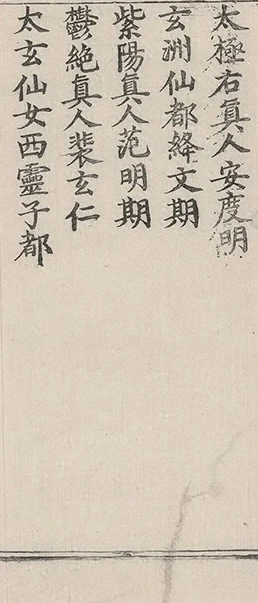 太極右真人安度明
玄洲仙都絳文期
紫陽真人范明期
鬱絶真人裴玄仁
太玄仙女西靈子都